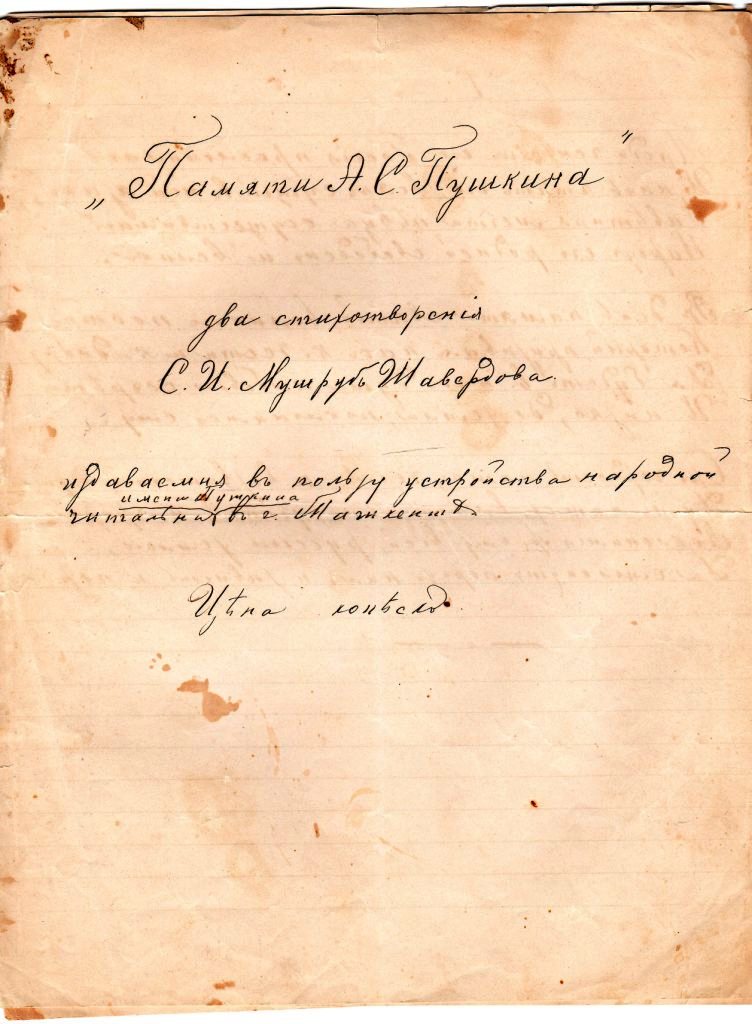 „Памяти А. С. Пушкина"
два стихотворенія
С. И. Мушрубъ Шавердова.
издаваемия въ пользу устройства народной
имени Пушкина
читальни въ г. Ташкентѣ.
Цѣна